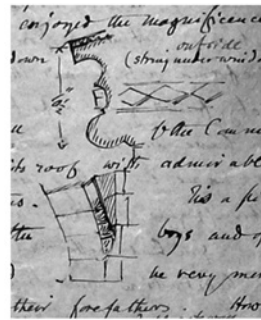 enjoyed the magnificence
outside
down (string under wind
6½"
& the Comm
its roof with admirable
is. 'Tis a
the boys and
be very
their forefathers. How